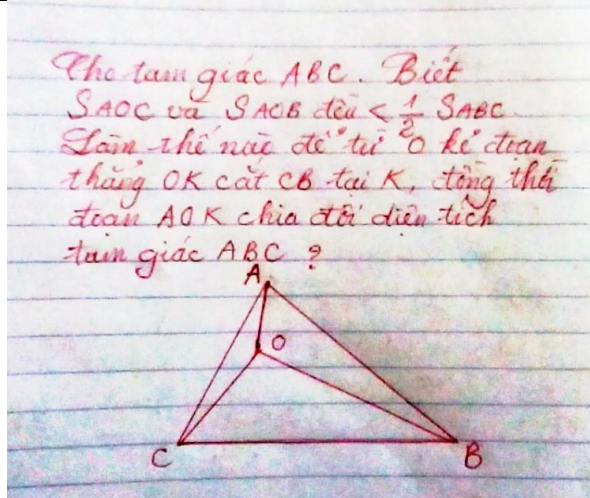 Cho tam giác ABC. Biết
SAOC và SAOB đều < 1/2 SABC.
Làm thế nào để từ O kẻ đoạn
thẳng OK cắt CB tại K, đồng thời
đoạn AOK chia đôi diện tích
tam giác ABC ?
A
O
C B